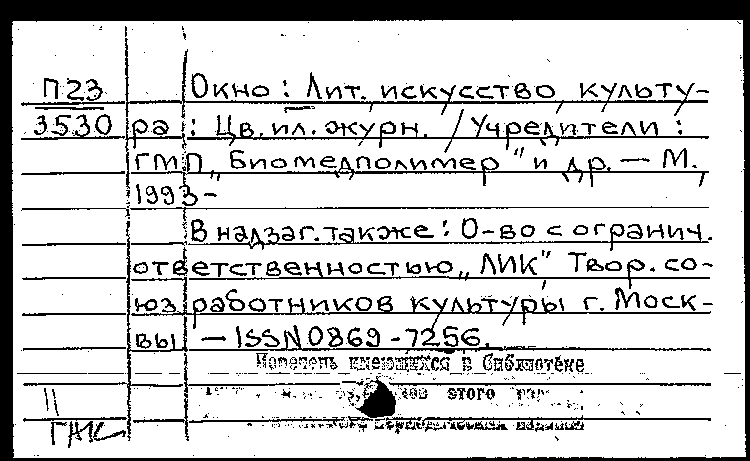 П23
3530
Окно : Лит., искусство, культу-
ра : Цв. ил. журн. / Учредители :
ГМП „Биомедполимер" и др. — М.,
1993 -
В надзаг. также : О-во с огранич.
ответственностью „ЛИК" Твор. со-
юз работников культуры г. Моск-
вы. — ISSN 0869-7256.
Перечень имеющихся в библиотеке
этого
периодических изданий